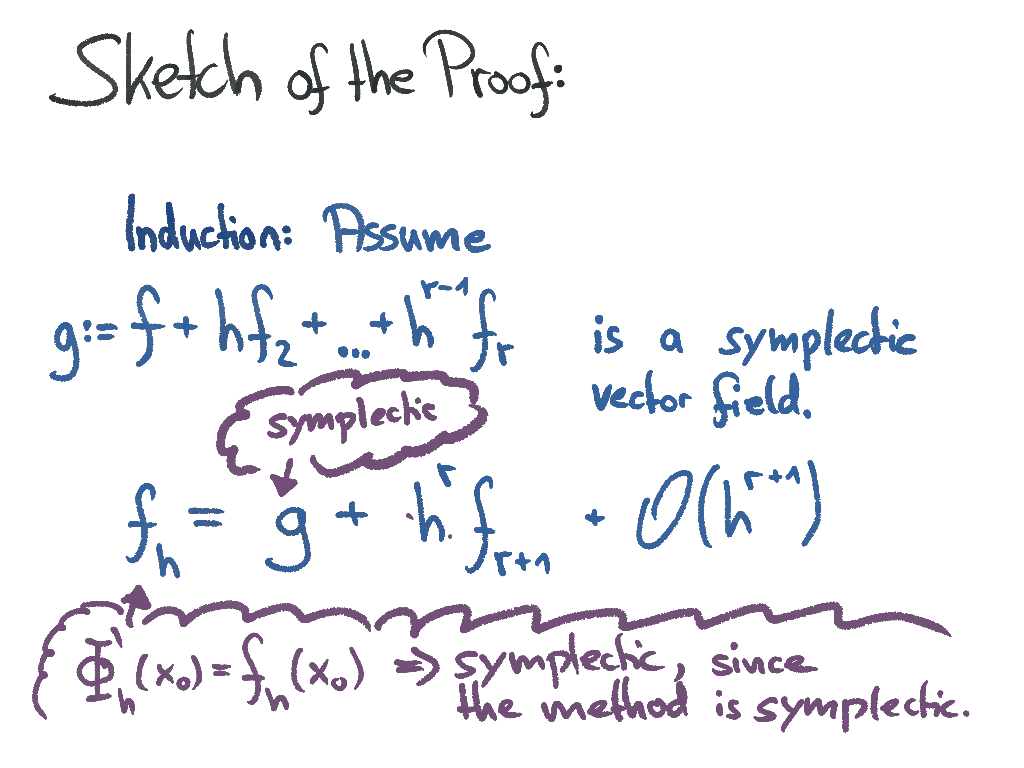 Sketch of the Proof:
Induction: Assume
g := f + hf₂ + ... + hʳ⁻¹ fᵣ is a symplectic
vector field.
symplectic
fₕ = g + hʳ fᵣ₊₁ + O(hʳ⁺¹)
Φ̇ₕ(x₀) = fₕ(x₀) ⇒ symplectic, since
the method is symplectic.